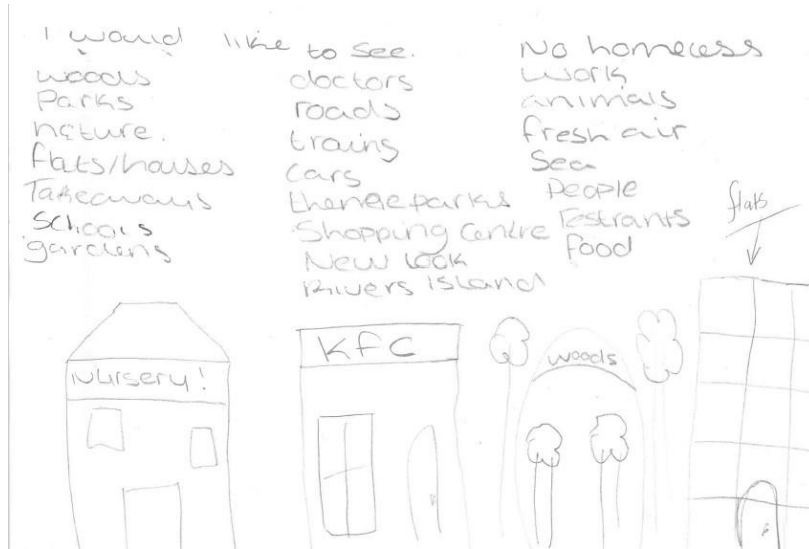 I would like to see.
woods
Parks
nature.
flats/houses
Takeaways
Schools
gardens
doctors
roads
trains
cars
themeparks
Shopping Centre
New look
Rivers Island
No homeless
work
animals
fresh air
Sea
People
Restrants
food
flats
Nursery!
KFC
woods